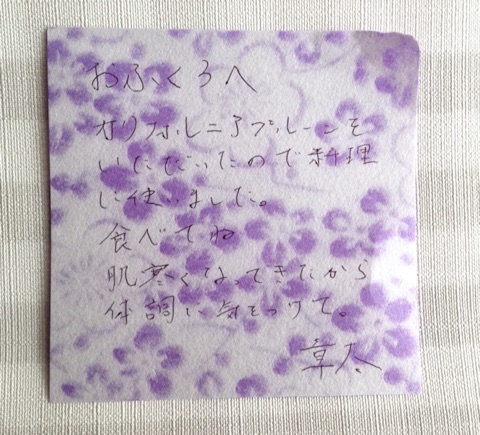 おふくろへ
カリフォルニアプルーンを
いただいたので料理
に使いました。
食べてね
肌寒くなってきたから
体調に気をつけて。
章太